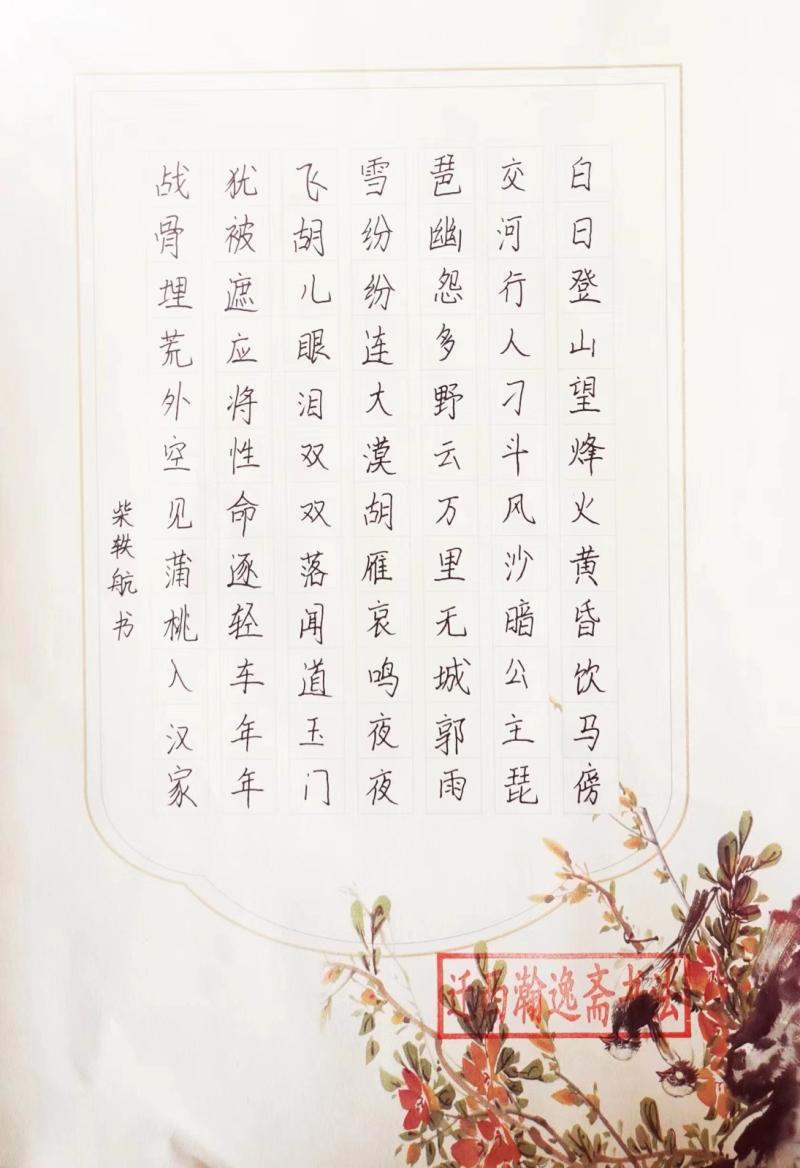 白日登山望烽火黄昏饮马傍
交河行人刁斗风沙暗公主琵
琶幽怨多野云万里无城郭雨
雪纷纷连大漠胡雁哀鸣夜夜
飞胡儿眼泪双双落闻道玉门
犹被遮应将性命逐轻车年年
战骨埋荒外空见蒲桃入汉家
柴轶航书
瀚逸斋书法